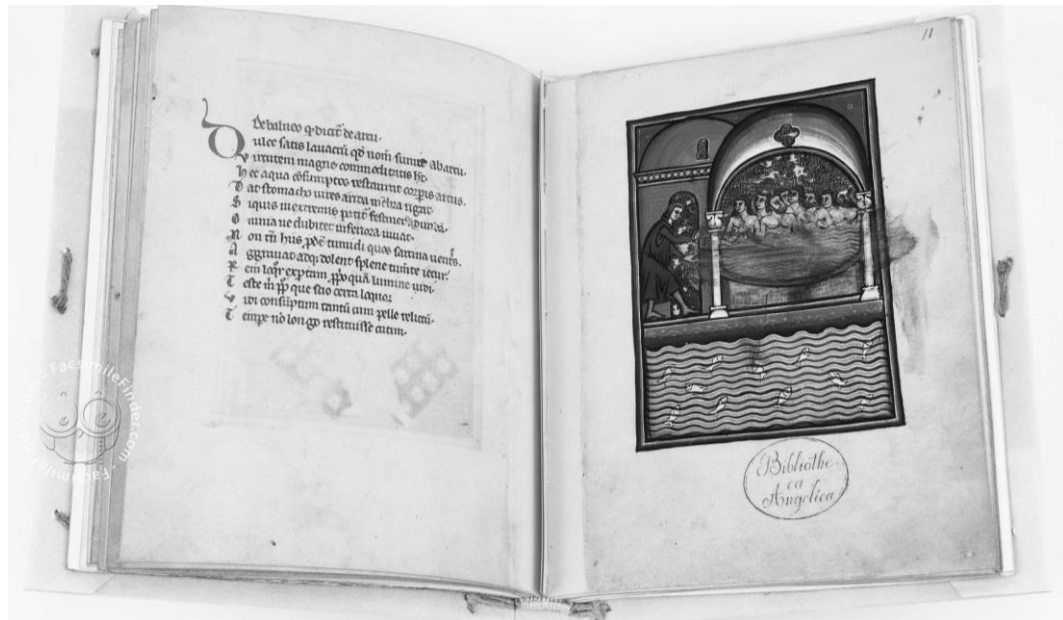 De balneo q dicit̄ de arcu.
Dulce satis lavacrū qď nom̄ sumit ab arcu.
Virtutem magne commoditatis ht̄.
hec aqua cōsumptos restaurat corꝑis artus.
Dat stomacho vires
Siquis in extremis patit̄
Omnia ne dubitet inferiora iuuat.
Non tn̄ hiis ꝓdē tumidi quos sarcina uentᵉs.
Aggrauat atqꝫ dolent splene tumēte iecur.
Rem loqᵉr exꝑtam quā lumine uidi.
Teste que scio certa loquor
Vidi consūptum tantū cum pelle relictū.
Tempe nō longo restituisse cutim.
11
Bibliothe
ca
Angelica
FacsimileFinder.com - FacsimileFinder.com -